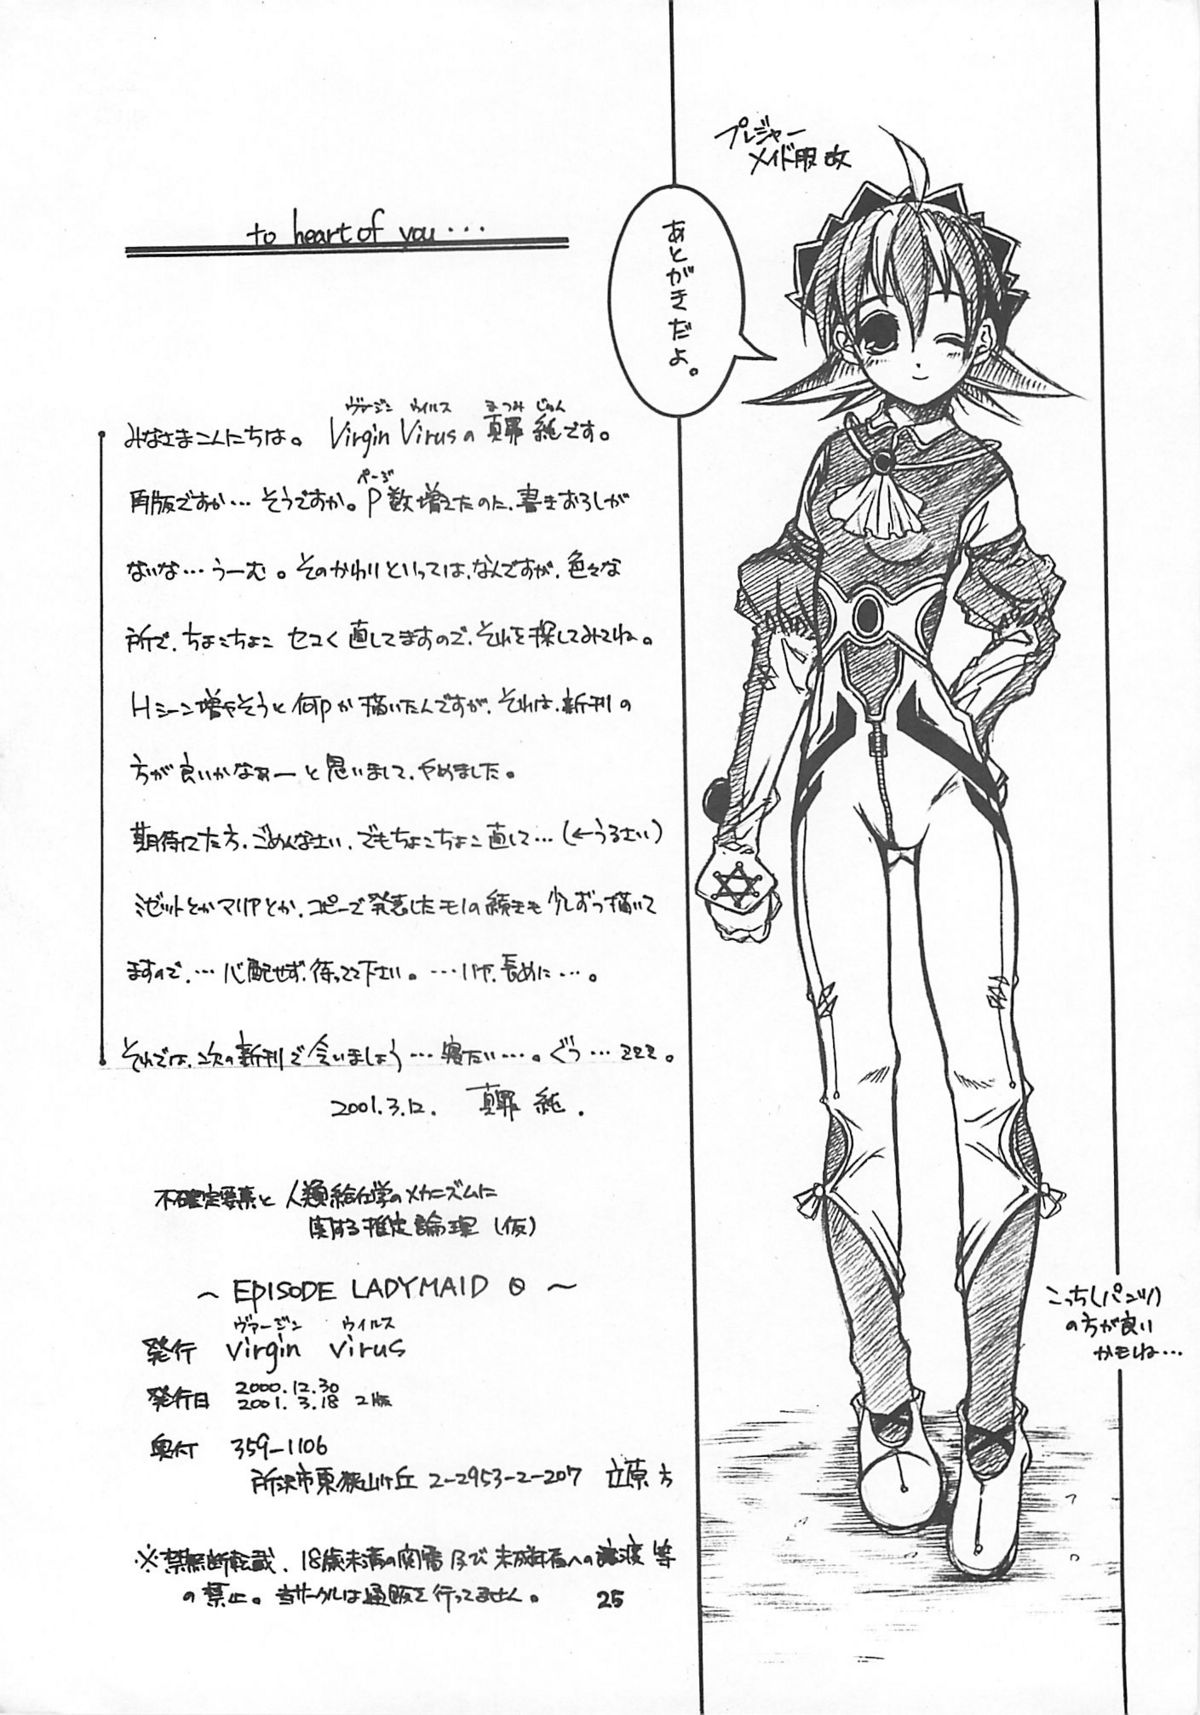 プレジャー
メイド服 改
あとがきだよ。
to heart of you・・・
ヴァージン ウイルス まつみ じゅん
みなさまこんにちは。 Virgin Virusの 真罪 純です。
再版ですか…そうですか。P数増えたのに、書きおろしが
ページ
ないな…うーむ。そのかわりといっては、なんですが、色々な
所で、ちょこちょこ セコく直してますので、それを探してみてね。
Hシーン増やそうと何Pか描いたんですが、それは、新刊の
方が良いかなぁーと思いまして、やめました。
期待してた方、ごめんなさい、でもちょこちょこ直して…(←うるさい)
ミゼットとかマリアとか、コピーで発表したモノの続きも少しずつ描いて
ますので、…心配せず、待ってて下さい。…いや、長めに…。
それでは、次の新刊で会いましょう…寝たい…。ぐぅ…zzz。
2001.3.12. 真罪 純.
不確定要素と人類給仕学のメカニズムに
関する推定論理(仮)
～EPISODE LADYMAID 0～
ヴァージン ウイルス
発行 virgin virus
発行日 2000.12.30
2001.3.18 2版
奥付 359-1106
所沢市東狭山ヶ丘2-2953-2-207 立原方
※禁無断転載、18歳未満の閲覧及び未成年者への譲渡等
の禁止。当サークルは通販を行ってません。
25
こっち(パンツ)
の方が良い
かもね…